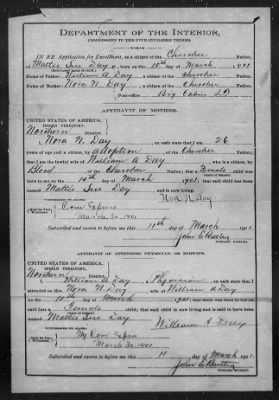 DEPARTMENT OF THE INTERIOR,
COMMISSION TO THE FIVE CIVILIZED TRIBES.
IN RE Application for Enrollment, as a citizen of the Cherokee Nation,
of Mattie Sue Day, born on the 10th day of March, 1901
Name of Father: William A Day, a citizen of the Cherokee Nation.
Name of Mother: Nora N. Day, a citizen of the Cherokee Nation.
Post-office: Big Cabin I.T.
AFFIDAVIT OF MOTHER.
UNITED STATES OF AMERICA,
INDIAN TERRITORY,
Northern District.
I, Nora N. Day, on oath state that I am 26
years of age and a citizen, by adoption, of the Cherokee Nation;
that I am the lawful wife of William A Day, who is a citizen, by
Blood, of the Cherokee Nation; that a Female child was
born to me on the 10th day of March, 1901, that said child has been
named Mattie Sue Day, and is now living.
Nora N Day
Com Expires
March 30 - 1901
Subscribed and sworn to before me this 11th day of March, 1901.
NOTARY PUBLIC.
AFFIDAVIT OF ATTENDING PHYSICIAN OR MIDWIFE.
UNITED STATES OF AMERICA,
INDIAN TERRITORY,
Northern District.
I, William A Day, a Physician, on oath state that I
attended on Mrs. Nora N Day, wife of William A Day
on the 10th day of March, 1901; that there was born to her on said date a
Female child; that said child is now living and is said to have been
named Mattie Sue Day
William A Day
My Com Expires
March 30 - 1901.
Subscribed and sworn to before me this 11 day of March 1901.
NOTARY PUBLIC.